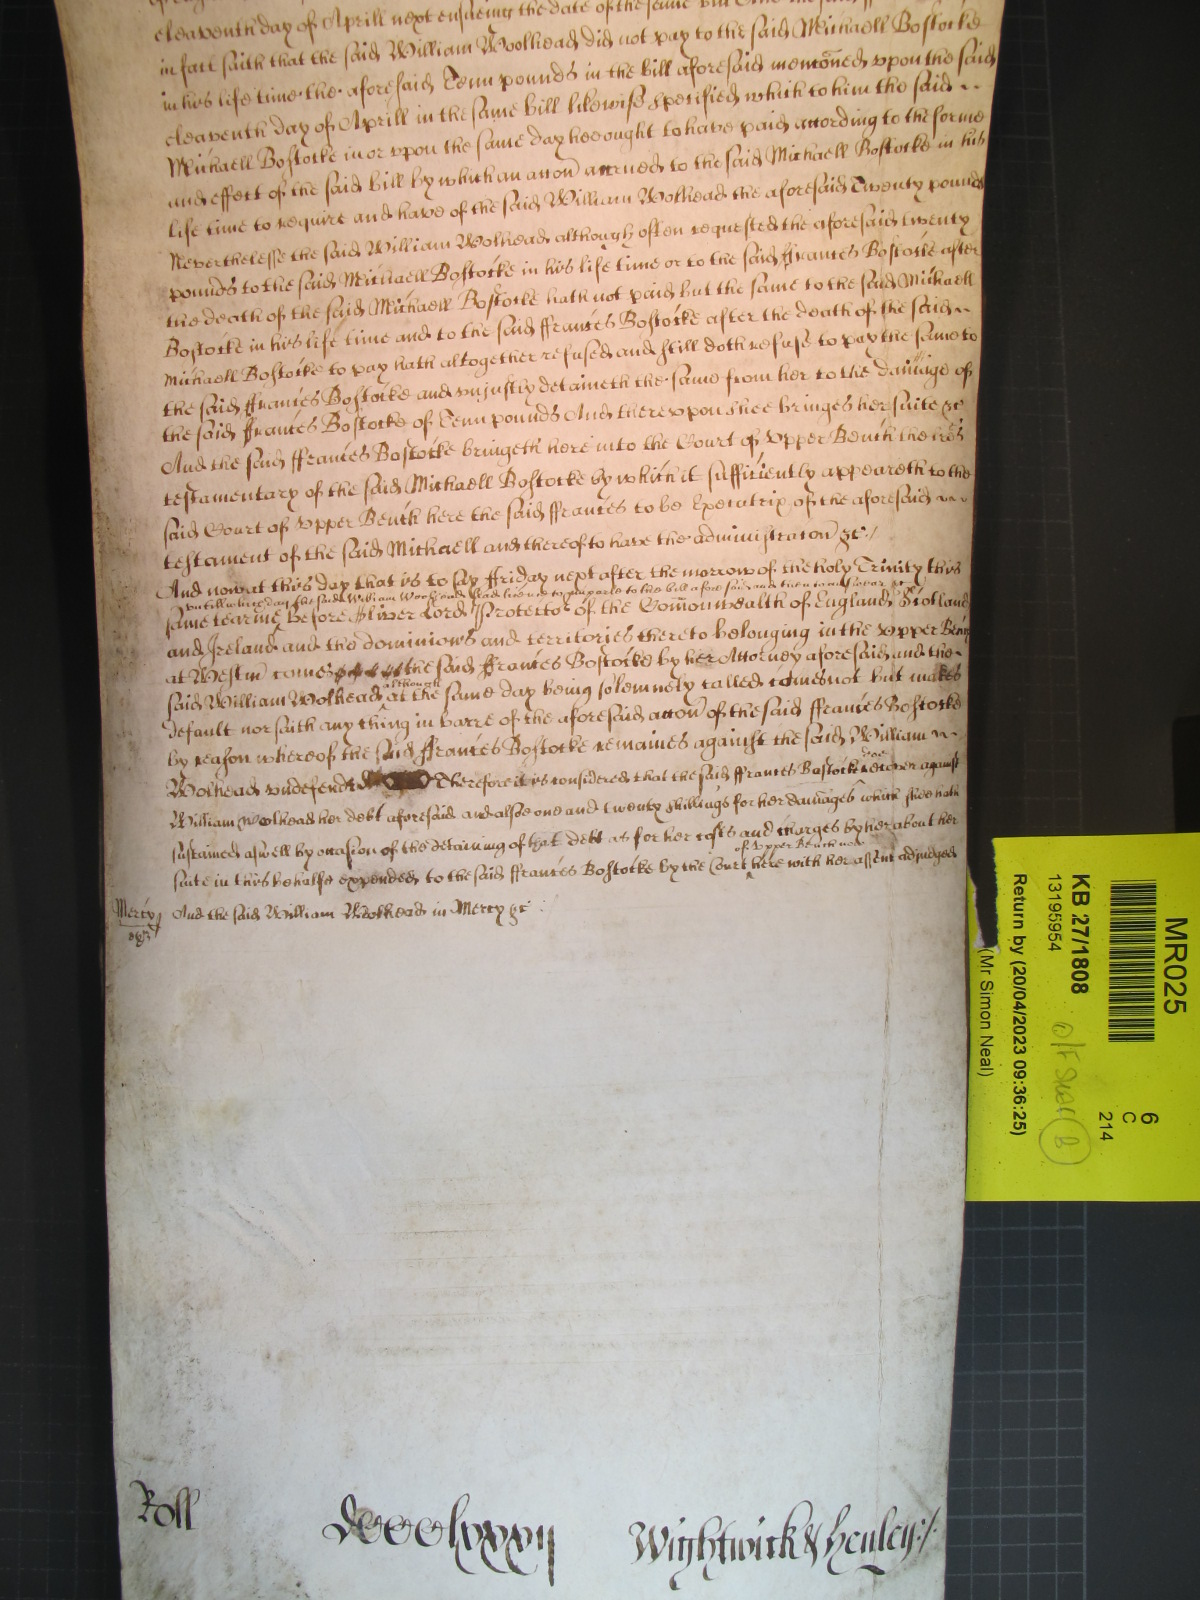 eleaventh day of Aprill next ensueing the date of the same bill And the said
in fact saith that the said William Woolhead did not pay to the said Michaell Bostocke
in his life time the aforesaid Tenn pounds in the bill aforesaid menc̃oned vpon the said
eleaventh day of Aprill in the same bill likewise specified which to him the said
Michaell Bostocke in or vpon the same day hee ought to have paid according to the forme
and effect of the said bill by which an acc̃on accrued to the said Michaell Bostocke in his
life time to require and have of the said William Wolhead the aforesaid Twenty pounds
Neverthelesse the said William Wolhead although often requested the aforesaid twenty
pounds to the said Michaell Bostocke in his life time or to the said ffrances Bostocke after
the death of the said Michaell Bostocke hath not paid but the same to the said Michaell
Bostocke in his life time and to the said ffrances Bostocke after the death of the said
Michaell Bostocke to pay hath altogether refused and still doth refuse to pay the same to
the said ffrances Bostocke and vnjustly detaineth the same from her to the damage of
the said ffrances Bostocke of Tenn pounds And therevpon shee bringes her suite &c
And the said ffrances Bostocke bringeth here into the Court of vpper Bench the l̃res
testamentary of the said Michaell Bostocke by which it sufficiently appeareth to the
said Court of vpper Bench here the said ffrances to be Executrix of the aforesaid
testament of the said Michaell and thereof to have the administrac̃on &c
And now at this day that is to say ffriday next after the morrow of the holy Trinity this
vntill which day the said William Woolhead had licence to imparle to the bill aforesaid and then to answer &c
same tearme before Oliver Lord Protector of the Com̃onwealth of England Scotland
and Ireland and the dominions and territories thereto belonging in the vpper Bench
at Westm̃ comes the said ffrances Bostocke by her Attorney aforesaid and the
although
said William Wolhead at the same day being solemnely called comes not but makes
default nor saith any thing in barre of the aforesaid acc̃on of the said ffrances Bostocke
by reason whereof the said ffrances Bostocke remaines against the said William
Wolhead vndefended Therefore it is considered that the said ffrances Bostocke doe recover against
William Woolhead her debt aforesaid and alsoe one and twenty shillings for her damages which shee hath
sustained aswell by occasion of the detaining of that debt as for her costs and charges by her about her
of vpper Bench now
suite in this behalfe expended to the said ffrances Bostocke by the Court here with her assent adjudged
Mercy And the said William Woolhead in Mercy &c
Roll Dccclxxxij Wightwick & Henley
MR025
KB 27/1808
13195954
Return by (20/04/2023 09:36:25)
(Mr Simon Neal)
6
C
214
B